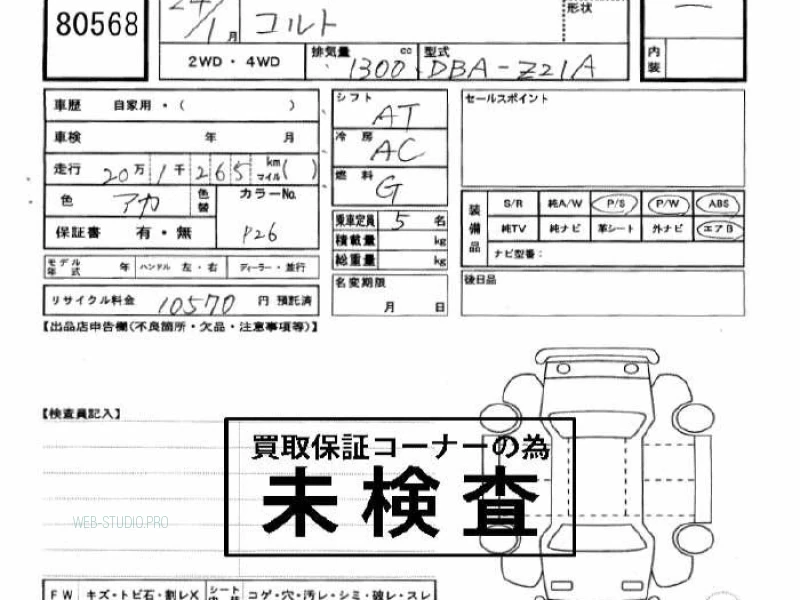 80568
24/1月 コルト
形状
2WD・4WD 排気量 1300 cc 型式 DBA-Z21A
内装
車歴 自家用・( )
車検 年 月
走行 20万1千265 km マイル( )
色 アカ 色替 カラーNo. P26
保証書 有・無
モデル年式 年 ハンドル 左・右 ディーラー・並行
リサイクル料金 10570 円 預託済
シフト AT
冷房 AC
燃料 G
乗車定員 5 名
積載量 kg
総重量 kg
名変期限 月 日
セールスポイント
装備品 S/R 純A/W P/S P/W ABS
純TV 純ナビ 革シート 外ナビ エアB
ナビ型番:
後日品
【出品店申告欄(不良箇所・欠品・注意事項等)】
【検査員記入】
買取保証コーナーの為
未検査
WEB-STUDIO.PRO
FW キズ・トビ石・割レX シート コゲ・穴・汚レ・シミ・破レ・スレ